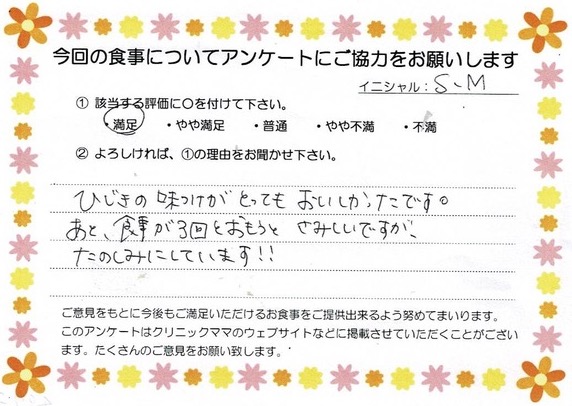 今回の食事についてアンケートにご協力をお願いします
イニシャル：S、M
① 該当する評価に〇を付けて下さい。
・満足 ・やや満足 ・普通 ・やや不満 ・不満
② よろしければ、①の理由をお聞かせ下さい。
ひじきの味つけがとってもおいしかったです。
あと、食事が3回とおもうとさみしいですが、
たのしみにしています!!
ご意見をもとに今後もご満足いただけるお食事をご提供出来るよう努めてまいります。
このアンケートはクリニックママのウェブサイトなどに掲載させていただくことがござい
ます。たくさんのご意見をお願い致します。